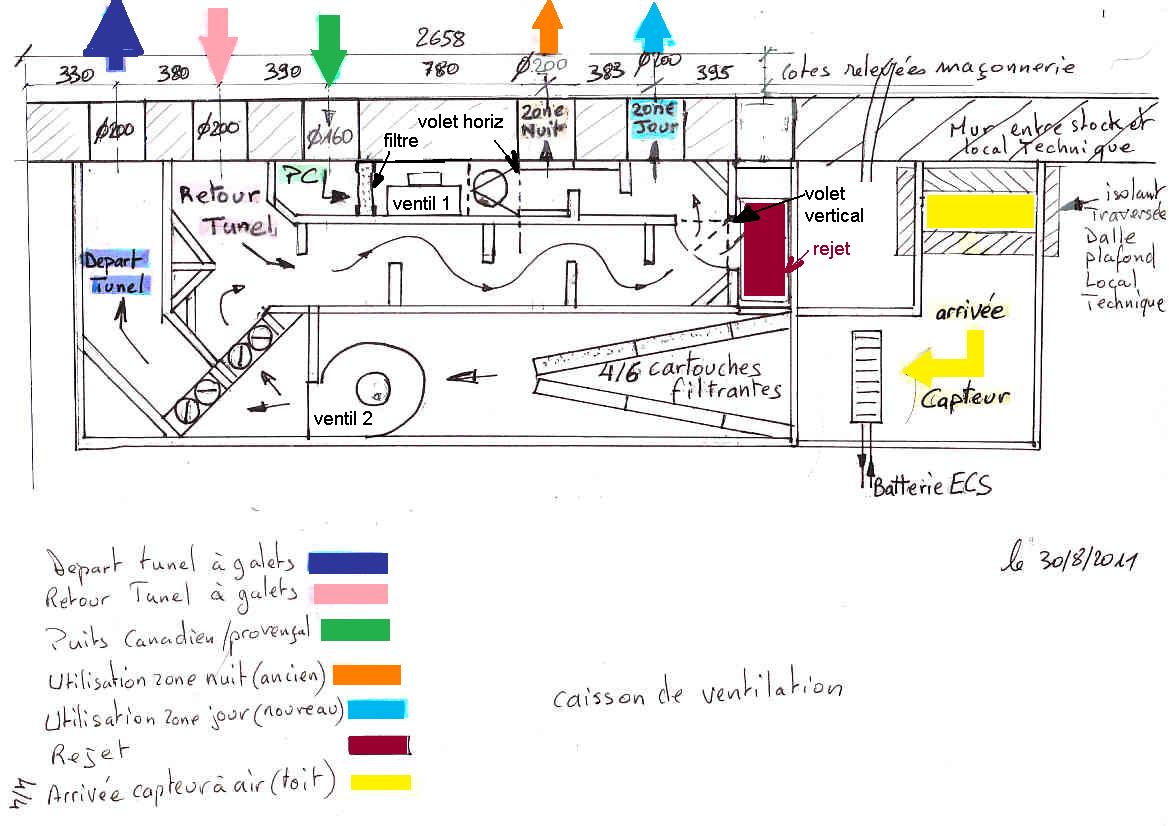 2658
330
380
390
780
Ø200
383
Ø200
395
cotes relevées maçonnerie
Ø200
Ø200
Ø160
volet horiz
filtre
Zone
Nuit
Zone
Jour
Mur entre stock et
local Technique
PC
Retour
Tunel
ventil 1
volet
vertical
rejet
isolant
Traversée
Dalle
plafond
Local
Technique
Depart
Tunel
arrivée
Capteur
4/6 cartouches
filtrantes
ventil 2
Batterie ECS
Depart tunel à galets
Retour Tunel à galets
Puits Canadien/provençal
Utilisation zone nuit (ancien)
Utilisation zone jour (nouveau)
Rejet
Arrivée capteur à air (toit)
le 30/8/2011
caisson de ventilation
4/4